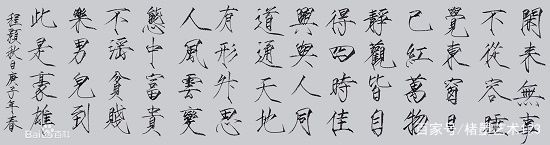 閑來無事
不從容睡
覺東窗日
已紅萬物
靜觀皆自
得四時佳
興與人同
道通天地
有形外思
入風雲變
態中富貴
不淫貧賤
樂男兒到
此是豪雄
程顥秋日庚子年春
Bai百科
百家号/楮墨艺术